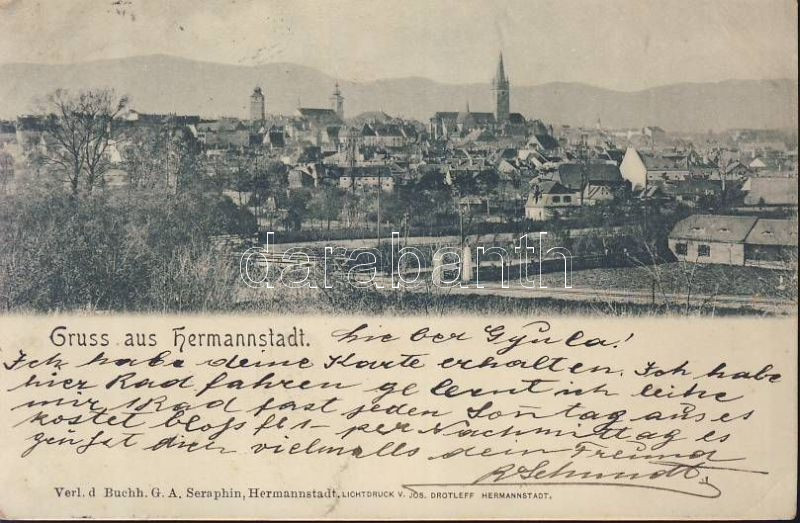 darabanth
Gruss aus Hermannstadt. lieber Gyula!
Ich habe deine Karte erhalten. Ich habe
hier Rad fahren gelernt ich leihe
mir 1 Rad fast jeden Sonntag aus es
kostet bloß per Nachmittag es
grüsst dich vielmalls dein Freund
R Schmidt
Verl. d Buchh. G. A. Seraphin, Hermannstadt. LICHTDRUCK V. JOS. DROTLEFF HERMANNSTADT.